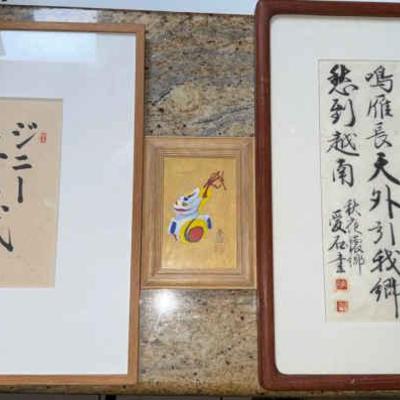 ジニー
鳴雁長天外引我鄉
愁到越南
秋夜鄉
愛石書